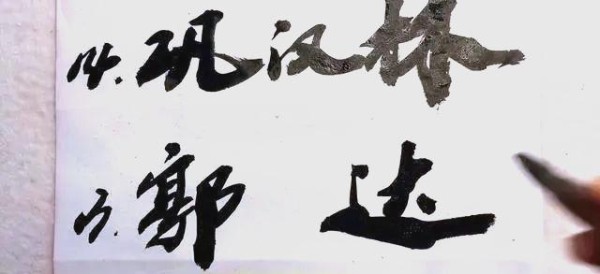 14.巩汉林
15.郭达